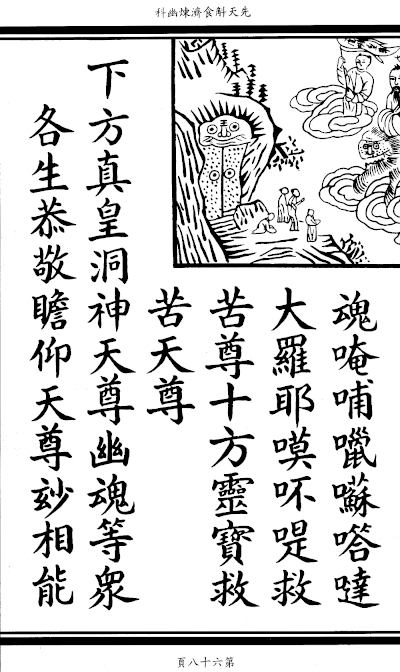 先天斛食濟煉幽科
魂唵哺囌嗒噠
大羅耶嗼吥救
苦尊十方靈寶救
苦天尊
下方真皇洞神天尊幽魂等眾
各生恭敬瞻仰天尊玅相能
第六十八頁